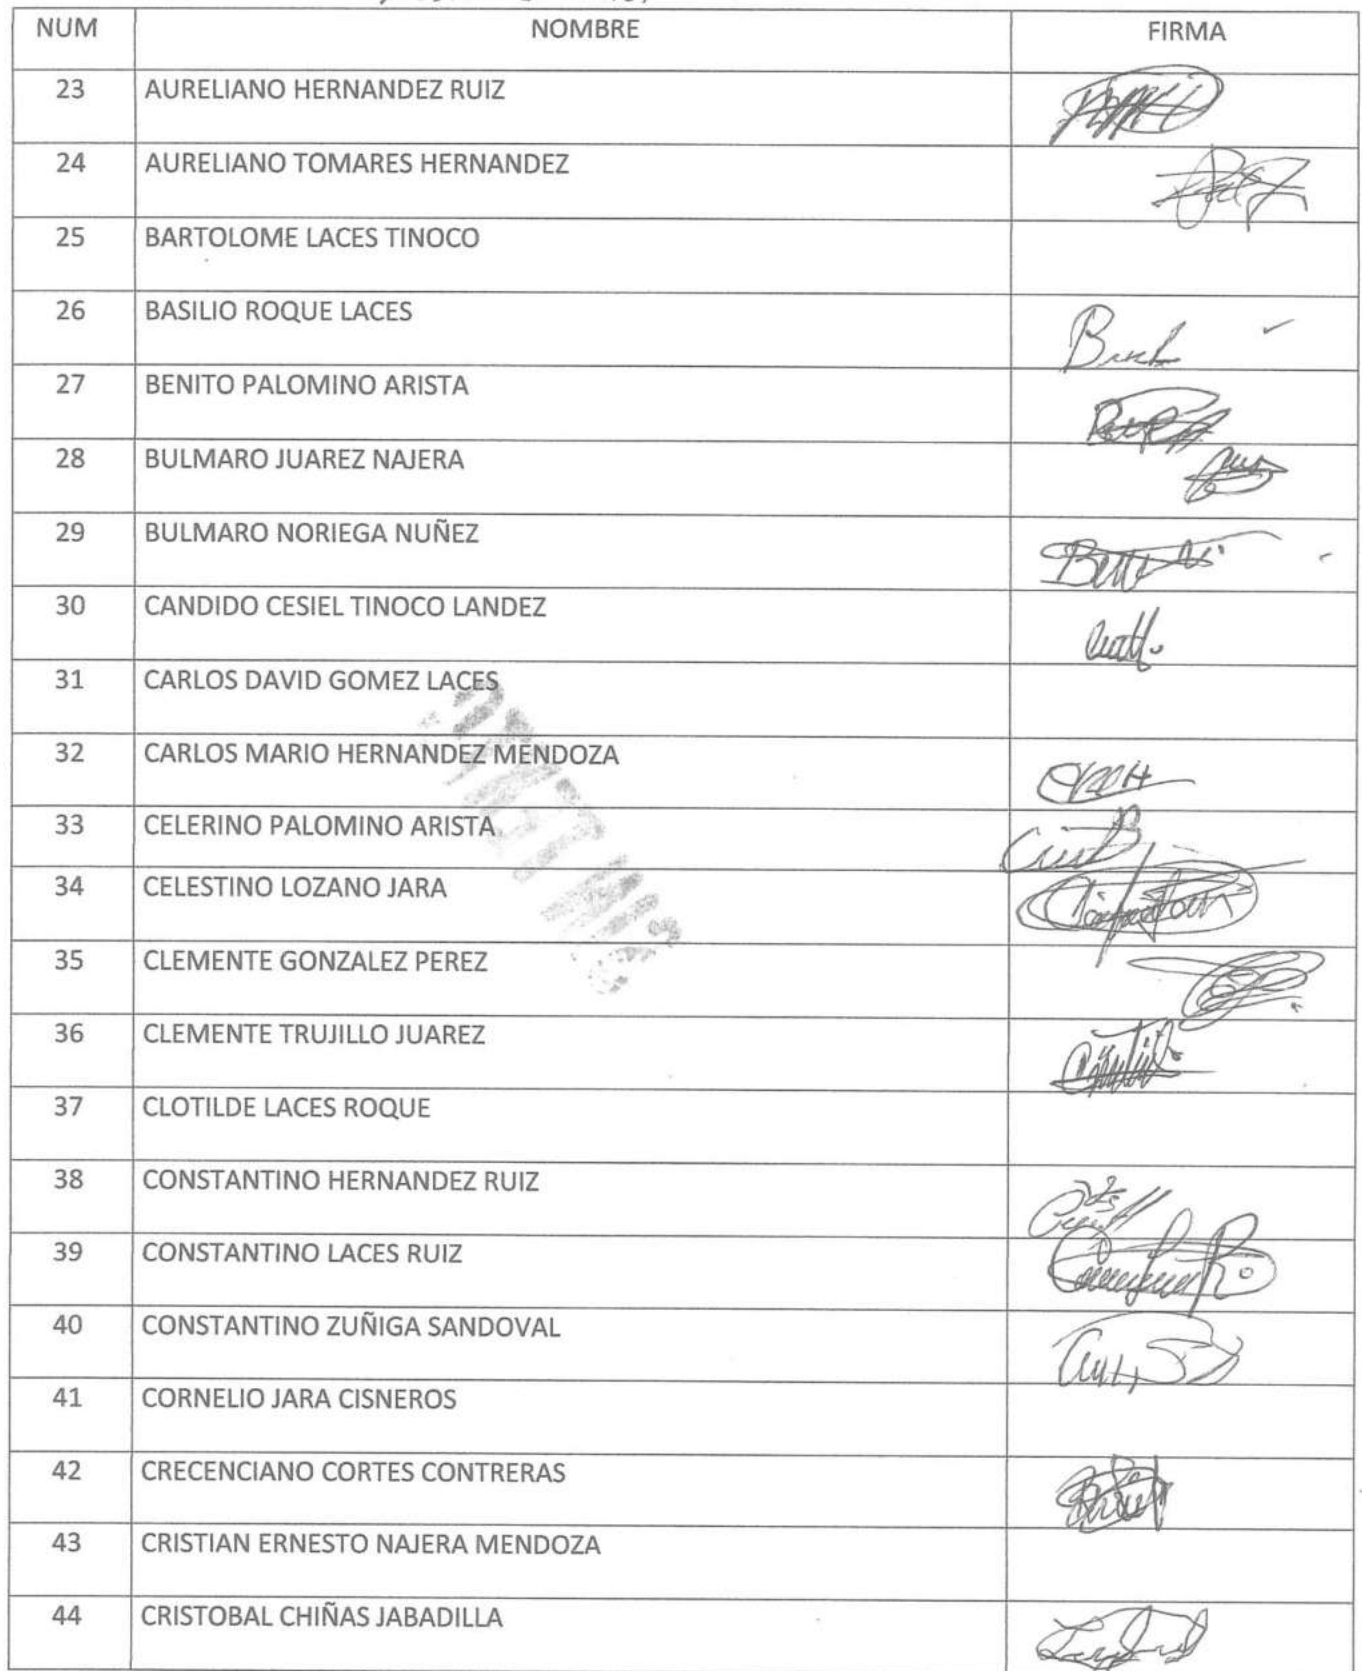 NUM NOMBRE FIRMA
23 AURELIANO HERNANDEZ RUIZ
24 AURELIANO TOMARES HERNANDEZ
25 BARTOLOME LACES TINOCO
26 BASILIO ROQUE LACES
27 BENITO PALOMINO ARISTA
28 BULMARO JUAREZ NAJERA
29 BULMARO NORIEGA NUÑEZ
30 CANDIDO CESIEL TINOCO LANDEZ
31 CARLOS DAVID GOMEZ LACES
32 CARLOS MARIO HERNANDEZ MENDOZA
33 CELERINO PALOMINO ARISTA
34 CELESTINO LOZANO JARA
35 CLEMENTE GONZALEZ PEREZ
36 CLEMENTE TRUJILLO JUAREZ
37 CLOTILDE LACES ROQUE
38 CONSTANTINO HERNANDEZ RUIZ
39 CONSTANTINO LACES RUIZ
40 CONSTANTINO ZUÑIGA SANDOVAL
41 CORNELIO JARA CISNEROS
42 CRECENCIANO CORTES CONTRERAS
43 CRISTIAN ERNESTO NAJERA MENDOZA
44 CRISTOBAL CHIÑAS JABADILLA